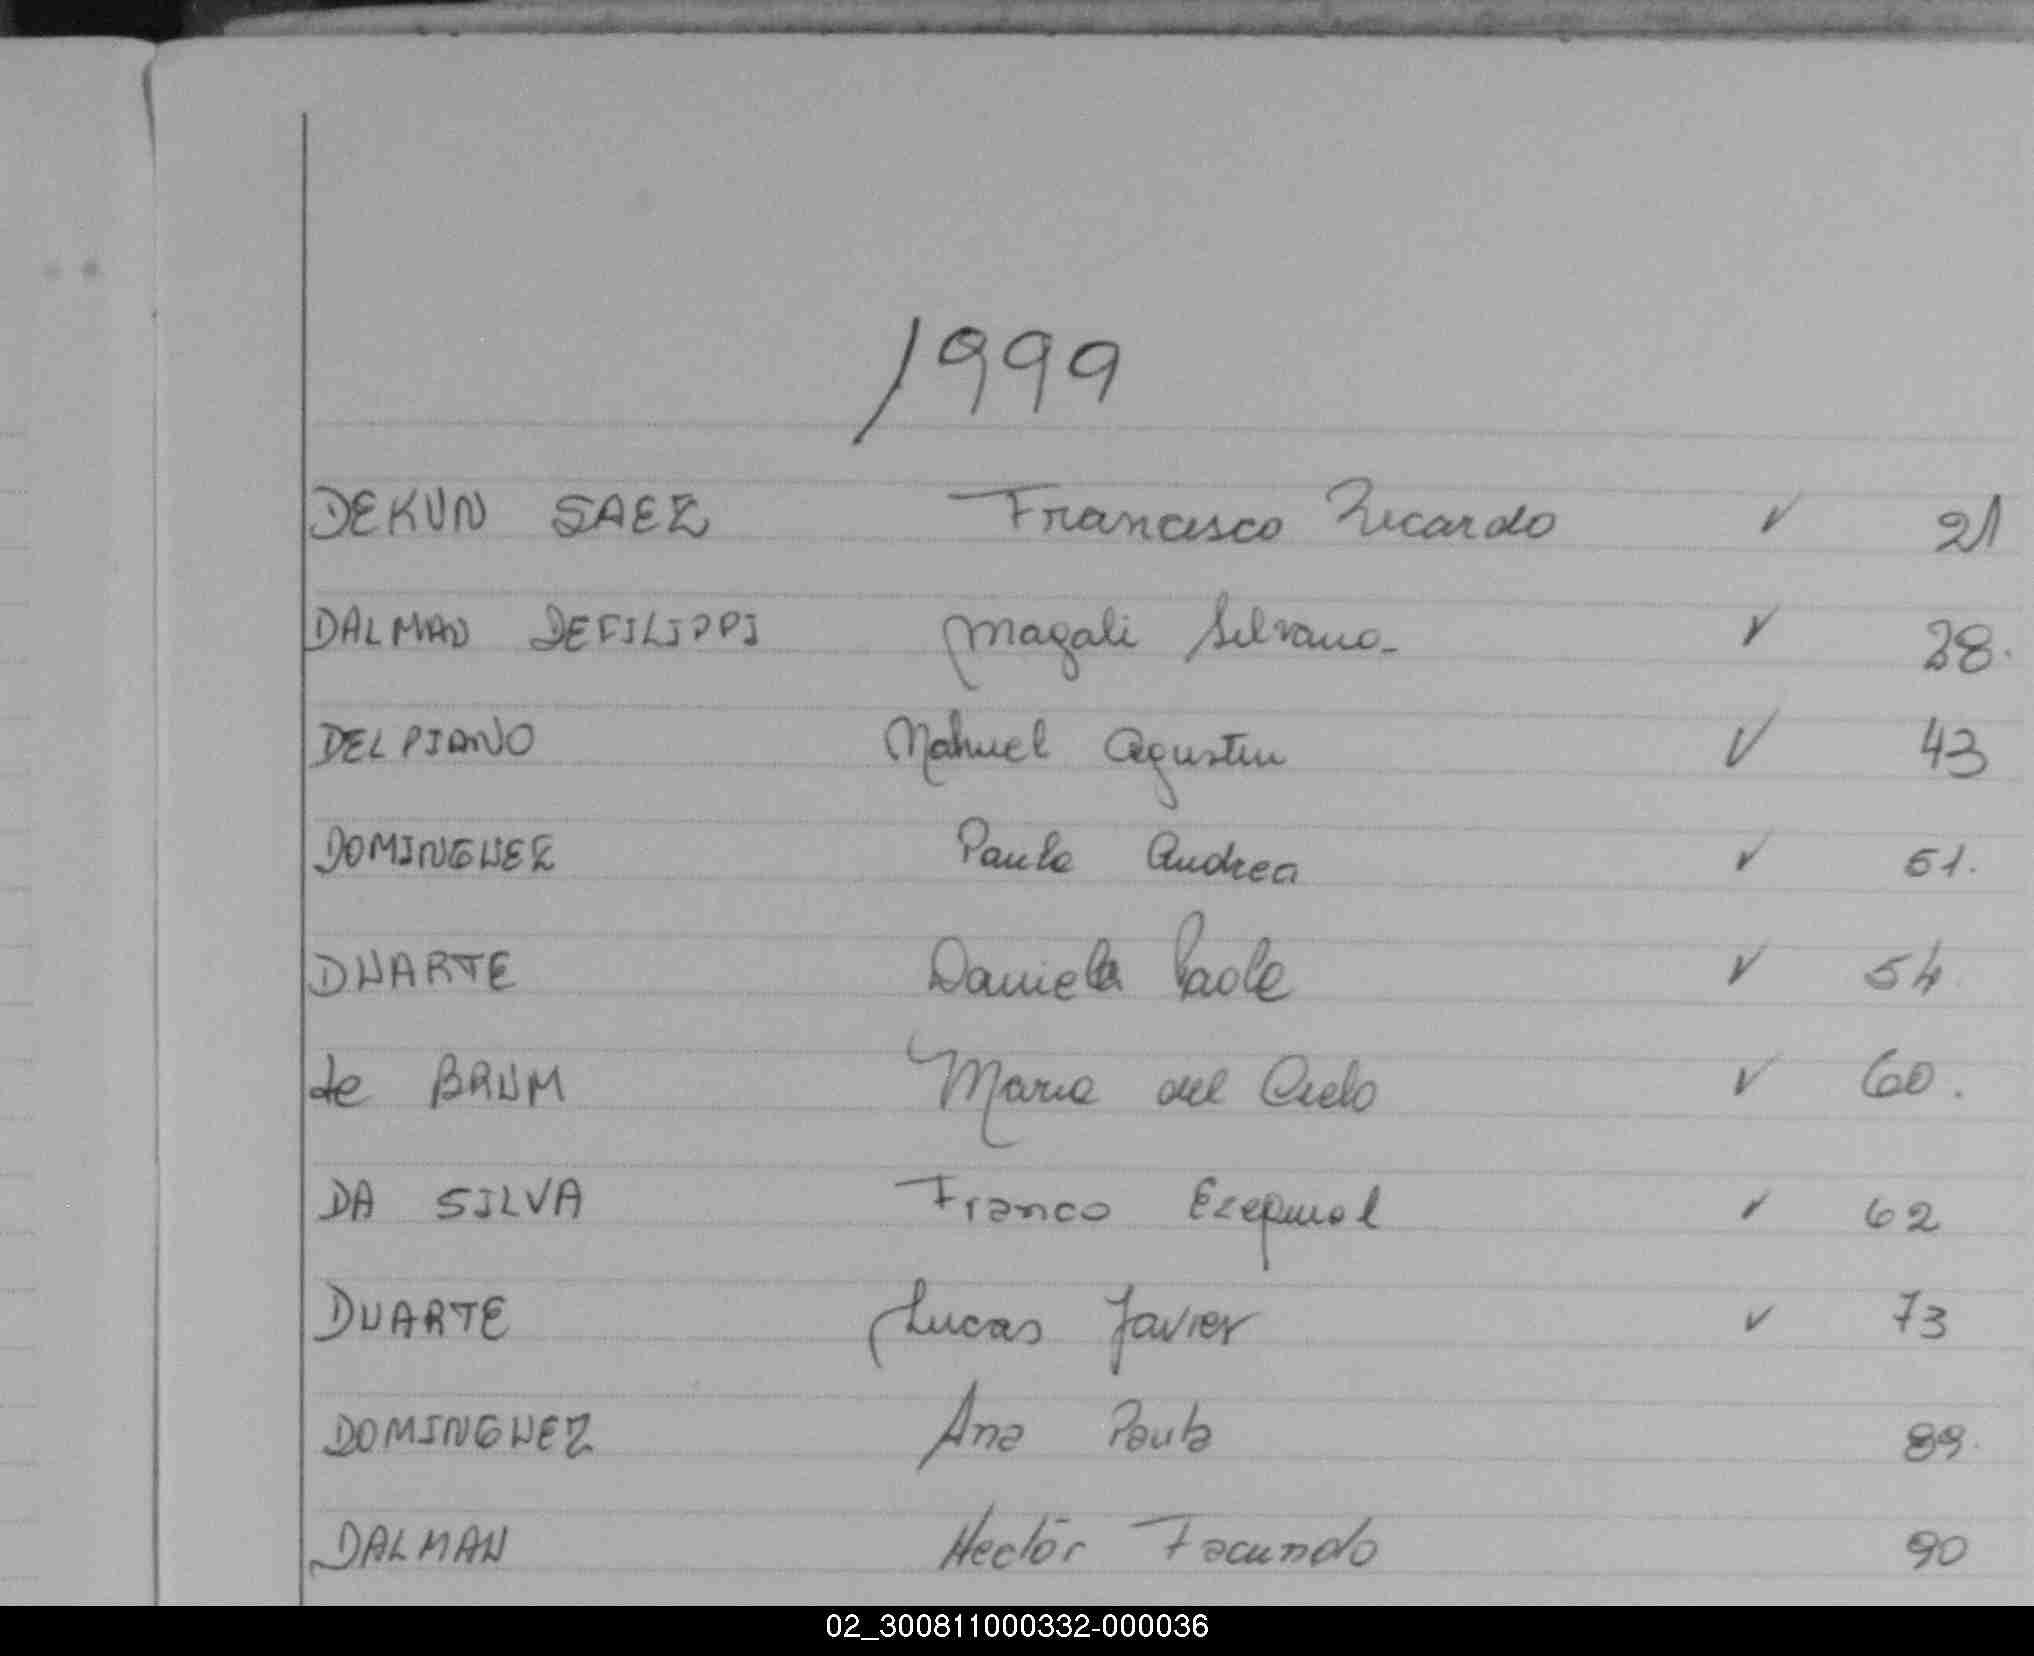 1999
DEKUN SAEZ Francisco Ricardo ✓ 21
DALMAN DEFILIPPI Magali Silvana - ✓ 28.
DELPIANO Nahuel Agustin ✓ 43
DOMINGUEZ Paula Andrea ✓ 51.
DUARTE Daniela Paola ✓ 54
de BRUM Maria del Cielo ✓ 60.
DA SILVA Franco Ezequiel ✓ 62
DUARTE Lucas Javier ✓ 73
DOMINGUEZ Ana Paula 89.
DALMAN Hector Facundo 90
02_300811000332-000036